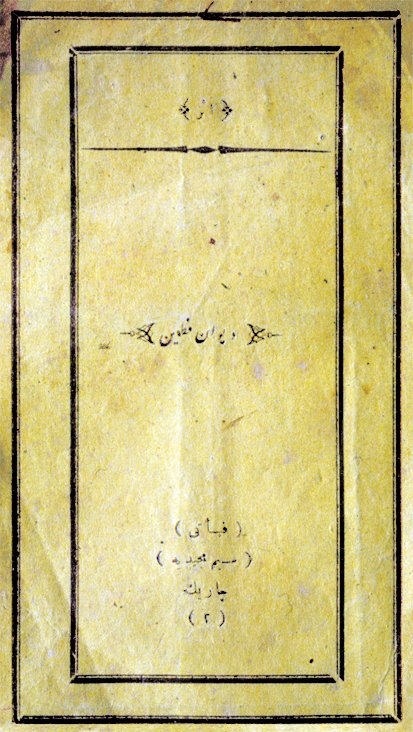 ﴿ اثر ﴾
دیوان فطین
( فیأتی )
( سیم مجیدیه )
چاریك
( ٢ )